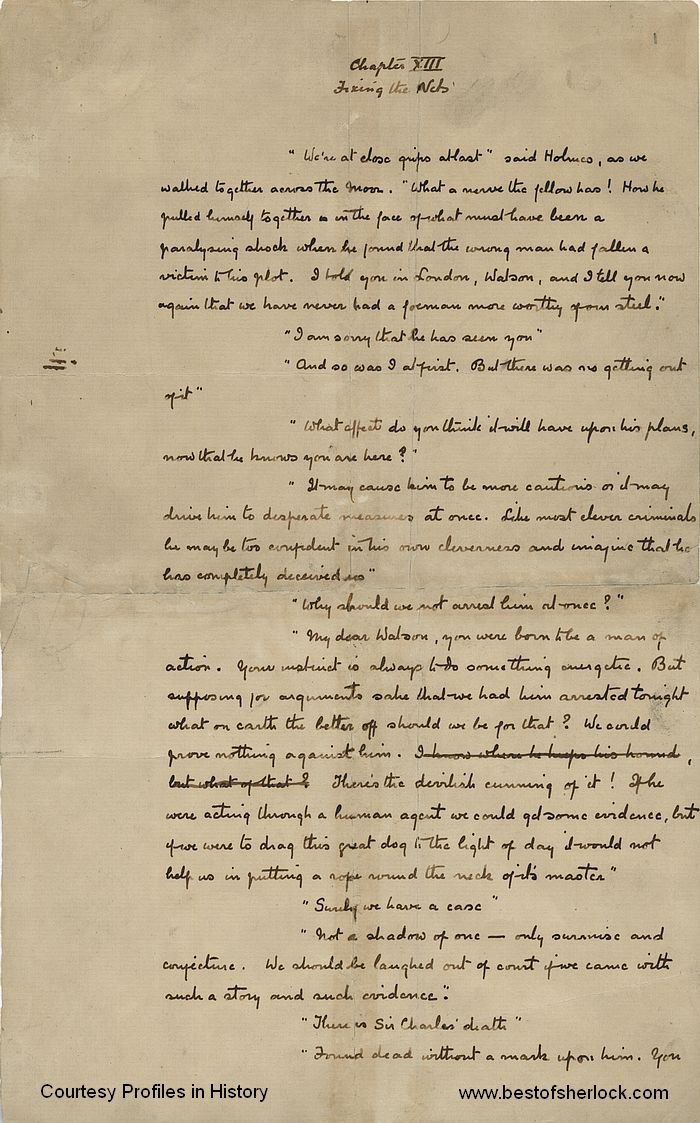 Chapter XIII
Fixing the Nets
"We're at close grips at last" said Holmes, as we
walked together across the Moor. "What a nerve the fellow has! How he
pulled himself together in the face of what must have been a
paralysing shock when he found that the wrong man had fallen a
victim to his plot. I told you in London, Watson, and I tell you now
again that we have never had a foeman more worthy of our steel."
"I am sorry that he has seen you"
"And so was I at first. But there was no getting out
of it"
"What effect do you think it will have upon his plans,
now that he knows you are here?"
"It may cause him to be more cautious or it may
drive him to desperate measures at once. Like most clever criminals
he may be too confident in his own cleverness and imagine that he
has completely deceived us"
"Why should we not arrest him at once?"
"My dear Watson, you were born to be a man of
action. Your instinct is always to do something energetic. But
supposing for arguments sake that we had him arrested tonight
what on earth the better off should we be for that? We could
prove nothing against him. I know where he keeps his hound,
but what of that? There's the devilish cunning of it! If he
were acting through a human agent we could get some evidence, but
if we were to drag this great dog to the light of day it would not
help us in putting a rope round the neck of it's master"
"Surely we have a case"
"Not a shadow of one — only surmise and
conjecture. We should be laughed out of court if we came with
such a story and such evidence."
"There is Sir Charles' death"
"Found dead without a mark upon him. You
Courtesy Profiles in History
www.bestofsherlock.com